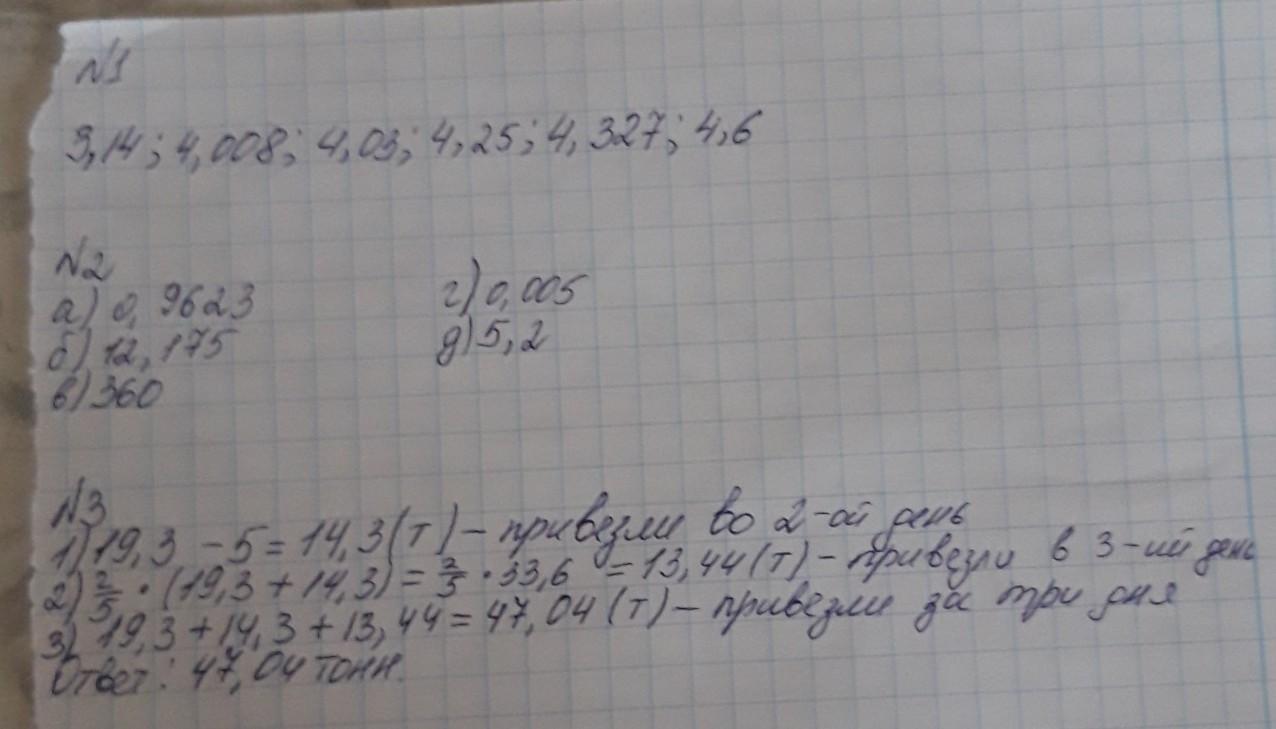 №1
3,14; 4,008; 4,03; 4,25; 4,327; 4,6
№2
а) 0,9623 г) 0,005
б) 12,175 д) 5,2
в) 360
№3
1) 19,3 - 5 = 14,3 (т) - привезли во 2-ой день
2) 2/5 · (19,3 + 14,3) = 2/5 · 33,6 = 13,44 (т) - привезли в 3-ий день
3) 19,3 + 14,3 + 13,44 = 47,04 (т) - привезли за три дня
Ответ: 47,04 тонн.